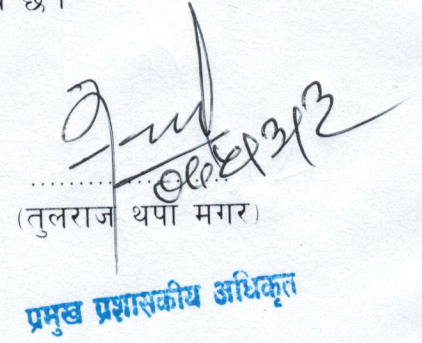 छ।
(तुलराज थपा मगर)
प्रमुख प्रशासकीय अधिकृत